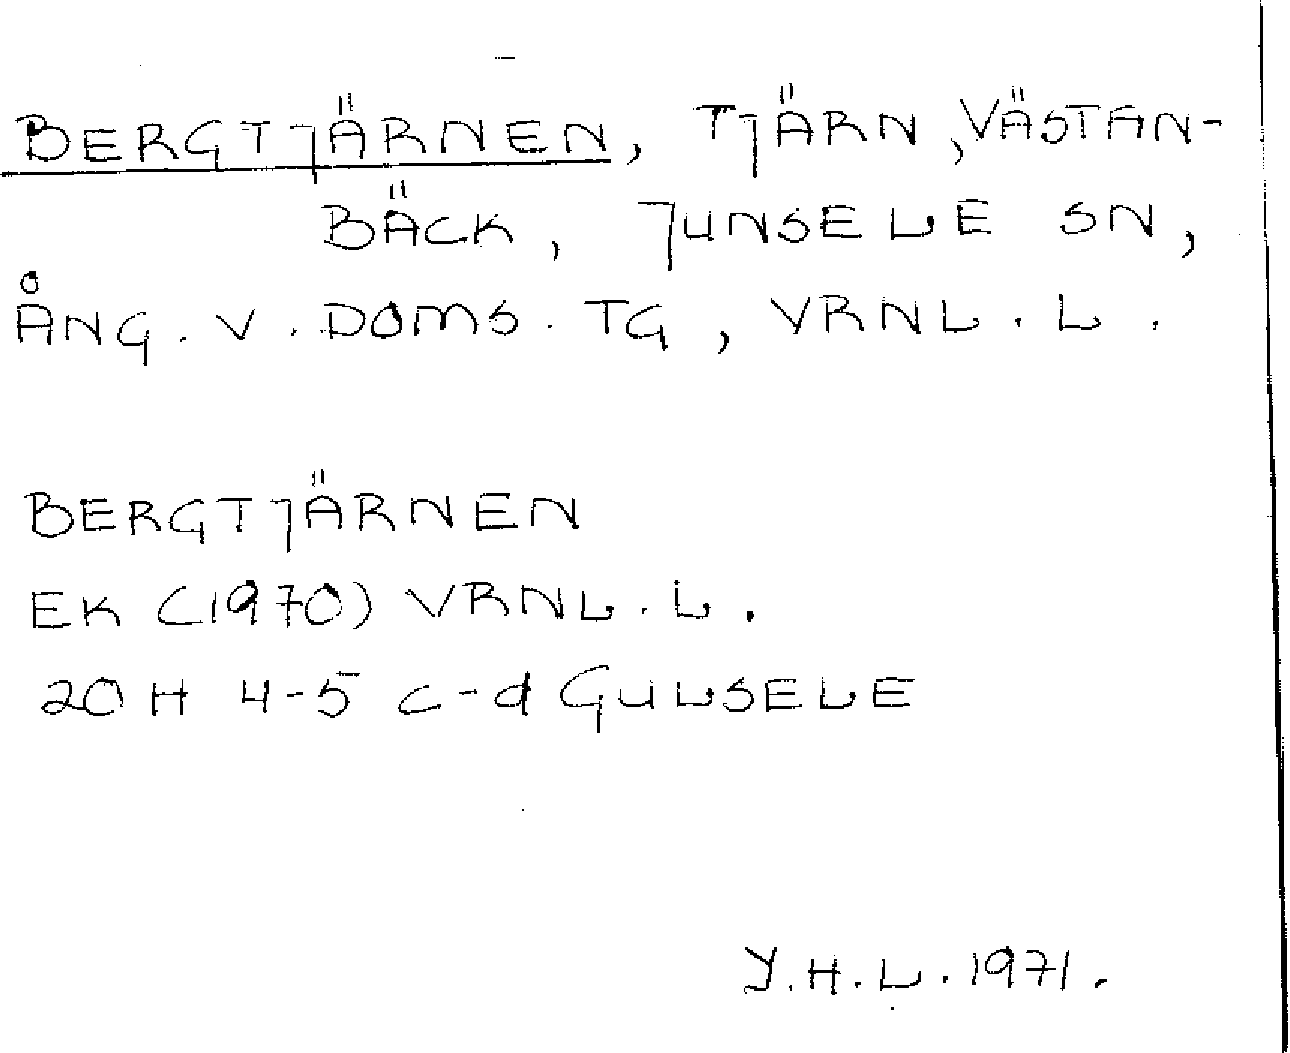 BERGTJÄRNEN, TJÄRN, VÄSTAN-
BÄCK, JUNSELE SN,
ÅNG. V. DOMS. TG, VRNL. L.
BERGTJÄRNEN
EK (1970) VRNL. L.
20 H 4-5 c-d GULSELE
Y.H.L. 1971.